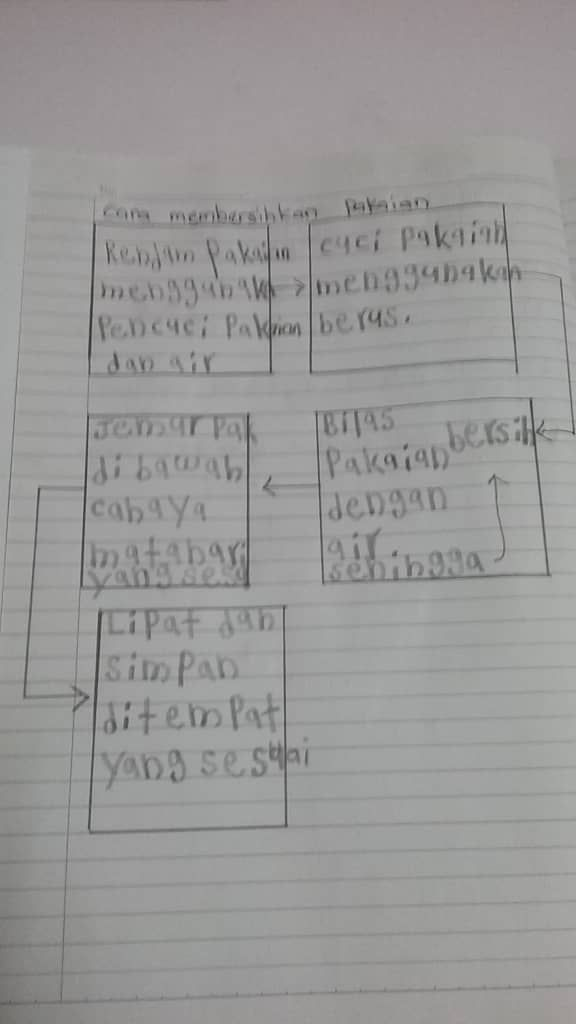 cara membersihkan Pakaian
Rendam Pakaian
menggunaka
Pencuci Pakaian
dan air
cuci Pakaian
menggunakan
berus.
Jemur Pak
di bawah
cahaya
matahari
yang sesu
Bilas
Pakaian bersih
dengan
air
sehingga
Lipat dan
simpan
ditempat
yang sesuai